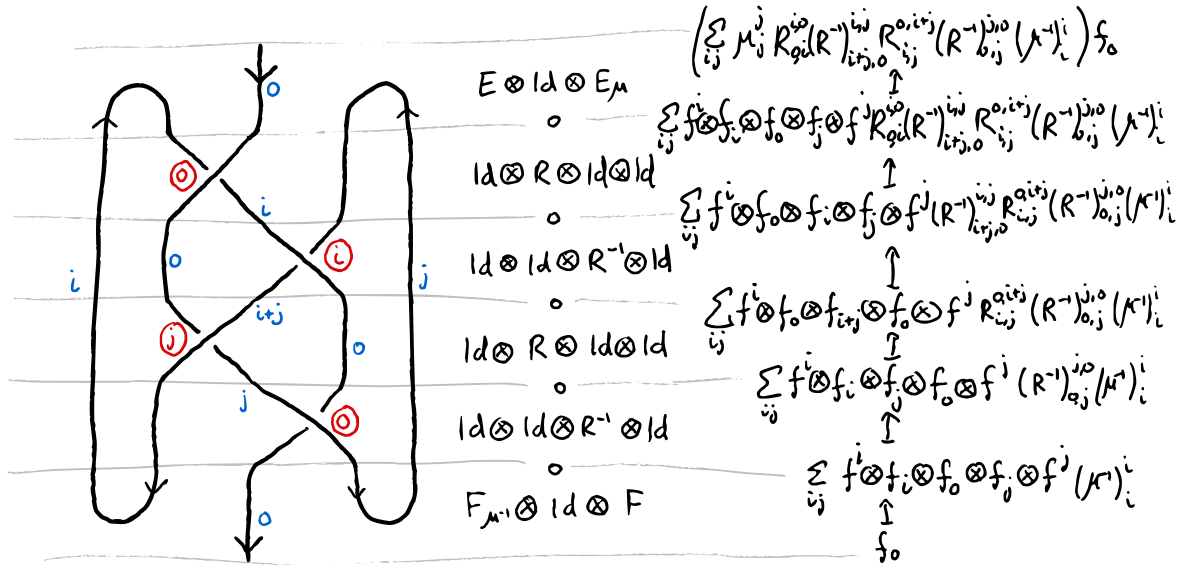 0
i
0
i+j
j
0
0
i
j
0
i
j
0
E ⊗ Id ⊗ E_μ
∘
Id ⊗ R ⊗ Id ⊗ Id
∘
Id ⊗ Id ⊗ R^{-1} ⊗ Id
∘
Id ⊗ R ⊗ Id ⊗ Id
∘
Id ⊗ Id ⊗ R^{-1} ⊗ Id
∘
F_{μ^{-1}} ⊗ Id ⊗ F
(∑_{ij} μ^j_j R^{i,0}_{0,i} (R^{-1})^{i,j}_{i+j,0} R^{0,i+j}_{i,j} (R^{-1})^{j,0}_{0,j} (μ^{-1})^i_i) f_0
↑
∑_{ij} f^i ⊗ f_i ⊗ f_0 ⊗ f_j ⊗ f^j R^{i,0}_{0,i} (R^{-1})^{i,j}_{i+j,0} R^{0,i+j}_{i,j} (R^{-1})^{j,0}_{0,j} (μ^{-1})^i_i
↑
∑_{ij} f^i ⊗ f_0 ⊗ f_i ⊗ f_j ⊗ f^j (R^{-1})^{i,j}_{i+j,0} R^{0,i+j}_{i,j} (R^{-1})^{j,0}_{0,j} (μ^{-1})^i_i
↑
∑_{ij} f^i ⊗ f_0 ⊗ f_{i+j} ⊗ f_0 ⊗ f^j R^{0,i+j}_{i,j} (R^{-1})^{j,0}_{0,j} (μ^{-1})^i_i
↑
∑_{ij} f^i ⊗ f_i ⊗ f_j ⊗ f_0 ⊗ f^j (R^{-1})^{j,0}_{0,j} (μ^{-1})^i_i
↑
∑_{ij} f^i ⊗ f_i ⊗ f_0 ⊗ f_j ⊗ f^j (μ^{-1})^i_i
↑
f_0